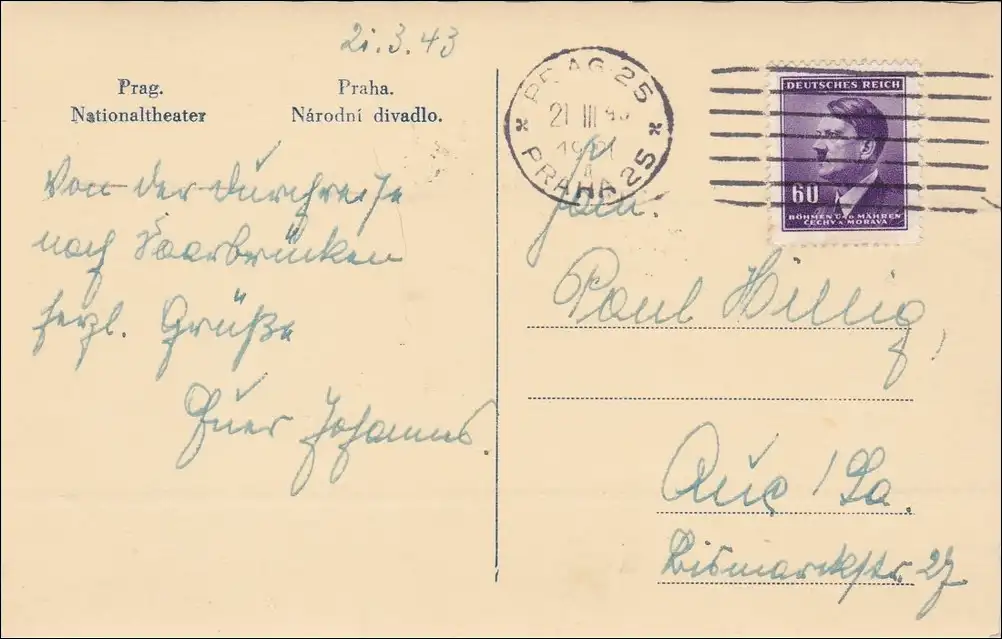 21.3.43
Prag.
Nationaltheater
Praha.
Národní divadlo.
Von der Durchreise
nach Saarbrücken
herzl. Grüße
Euer Johannes.
PRAG 25
21 III 43
PRAHA 25
DEUTSCHES REICH
60
BÖHMEN UND MÄHREN
ČECHY A MORAVA
Fam.
Paul Hillig,
Aue / Sa.
Bismarckstr. 27